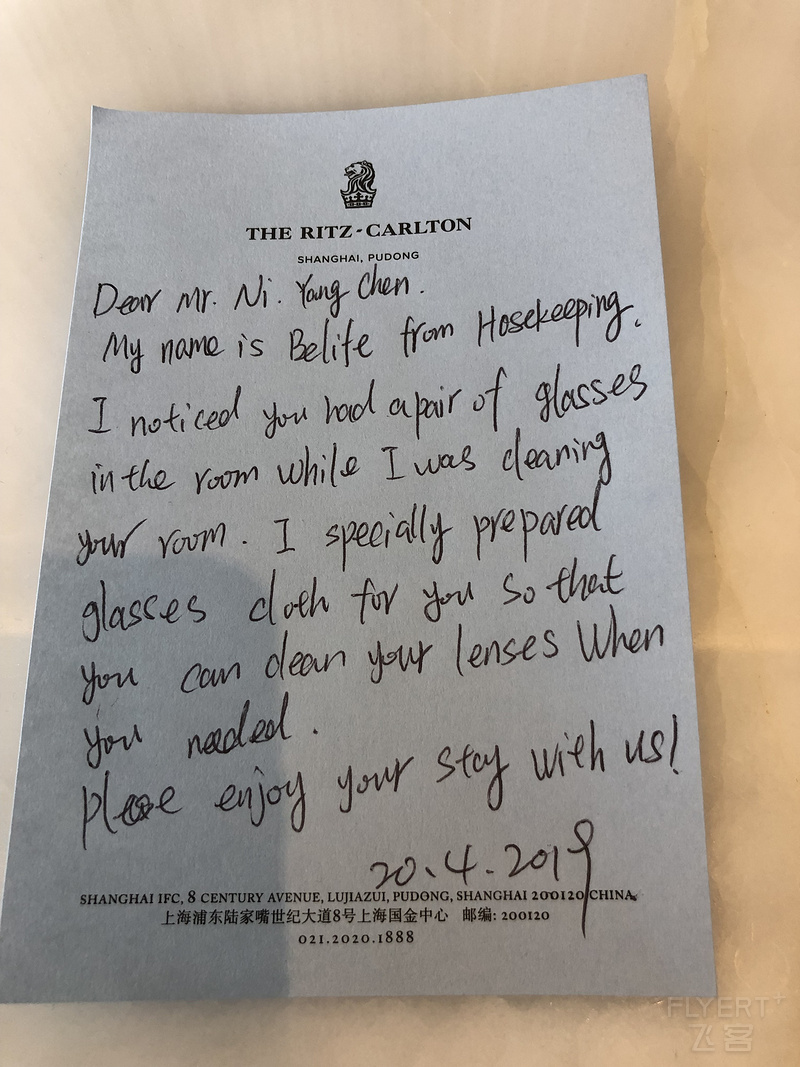 THE RITZ-CARLTON
SHANGHAI, PUDONG
Dear Mr. Ni. Yang Chen.
My name is Belife from Hosekeeping.
I noticed you had a pair of glasses
in the room while I was cleaning
your room. I specially prepared
glasses cloth for you so that
you can clean your lenses When
you needed.
Please enjoy your stay with us!
20.4.2019
SHANGHAI IFC, 8 CENTURY AVENUE, LUJIAZUI, PUDONG, SHANGHAI 200120, CHINA.
上海浦东陆家嘴世纪大道8号上海国金中心 邮编: 200120
021.2020.1888
FLYERT+
飞客